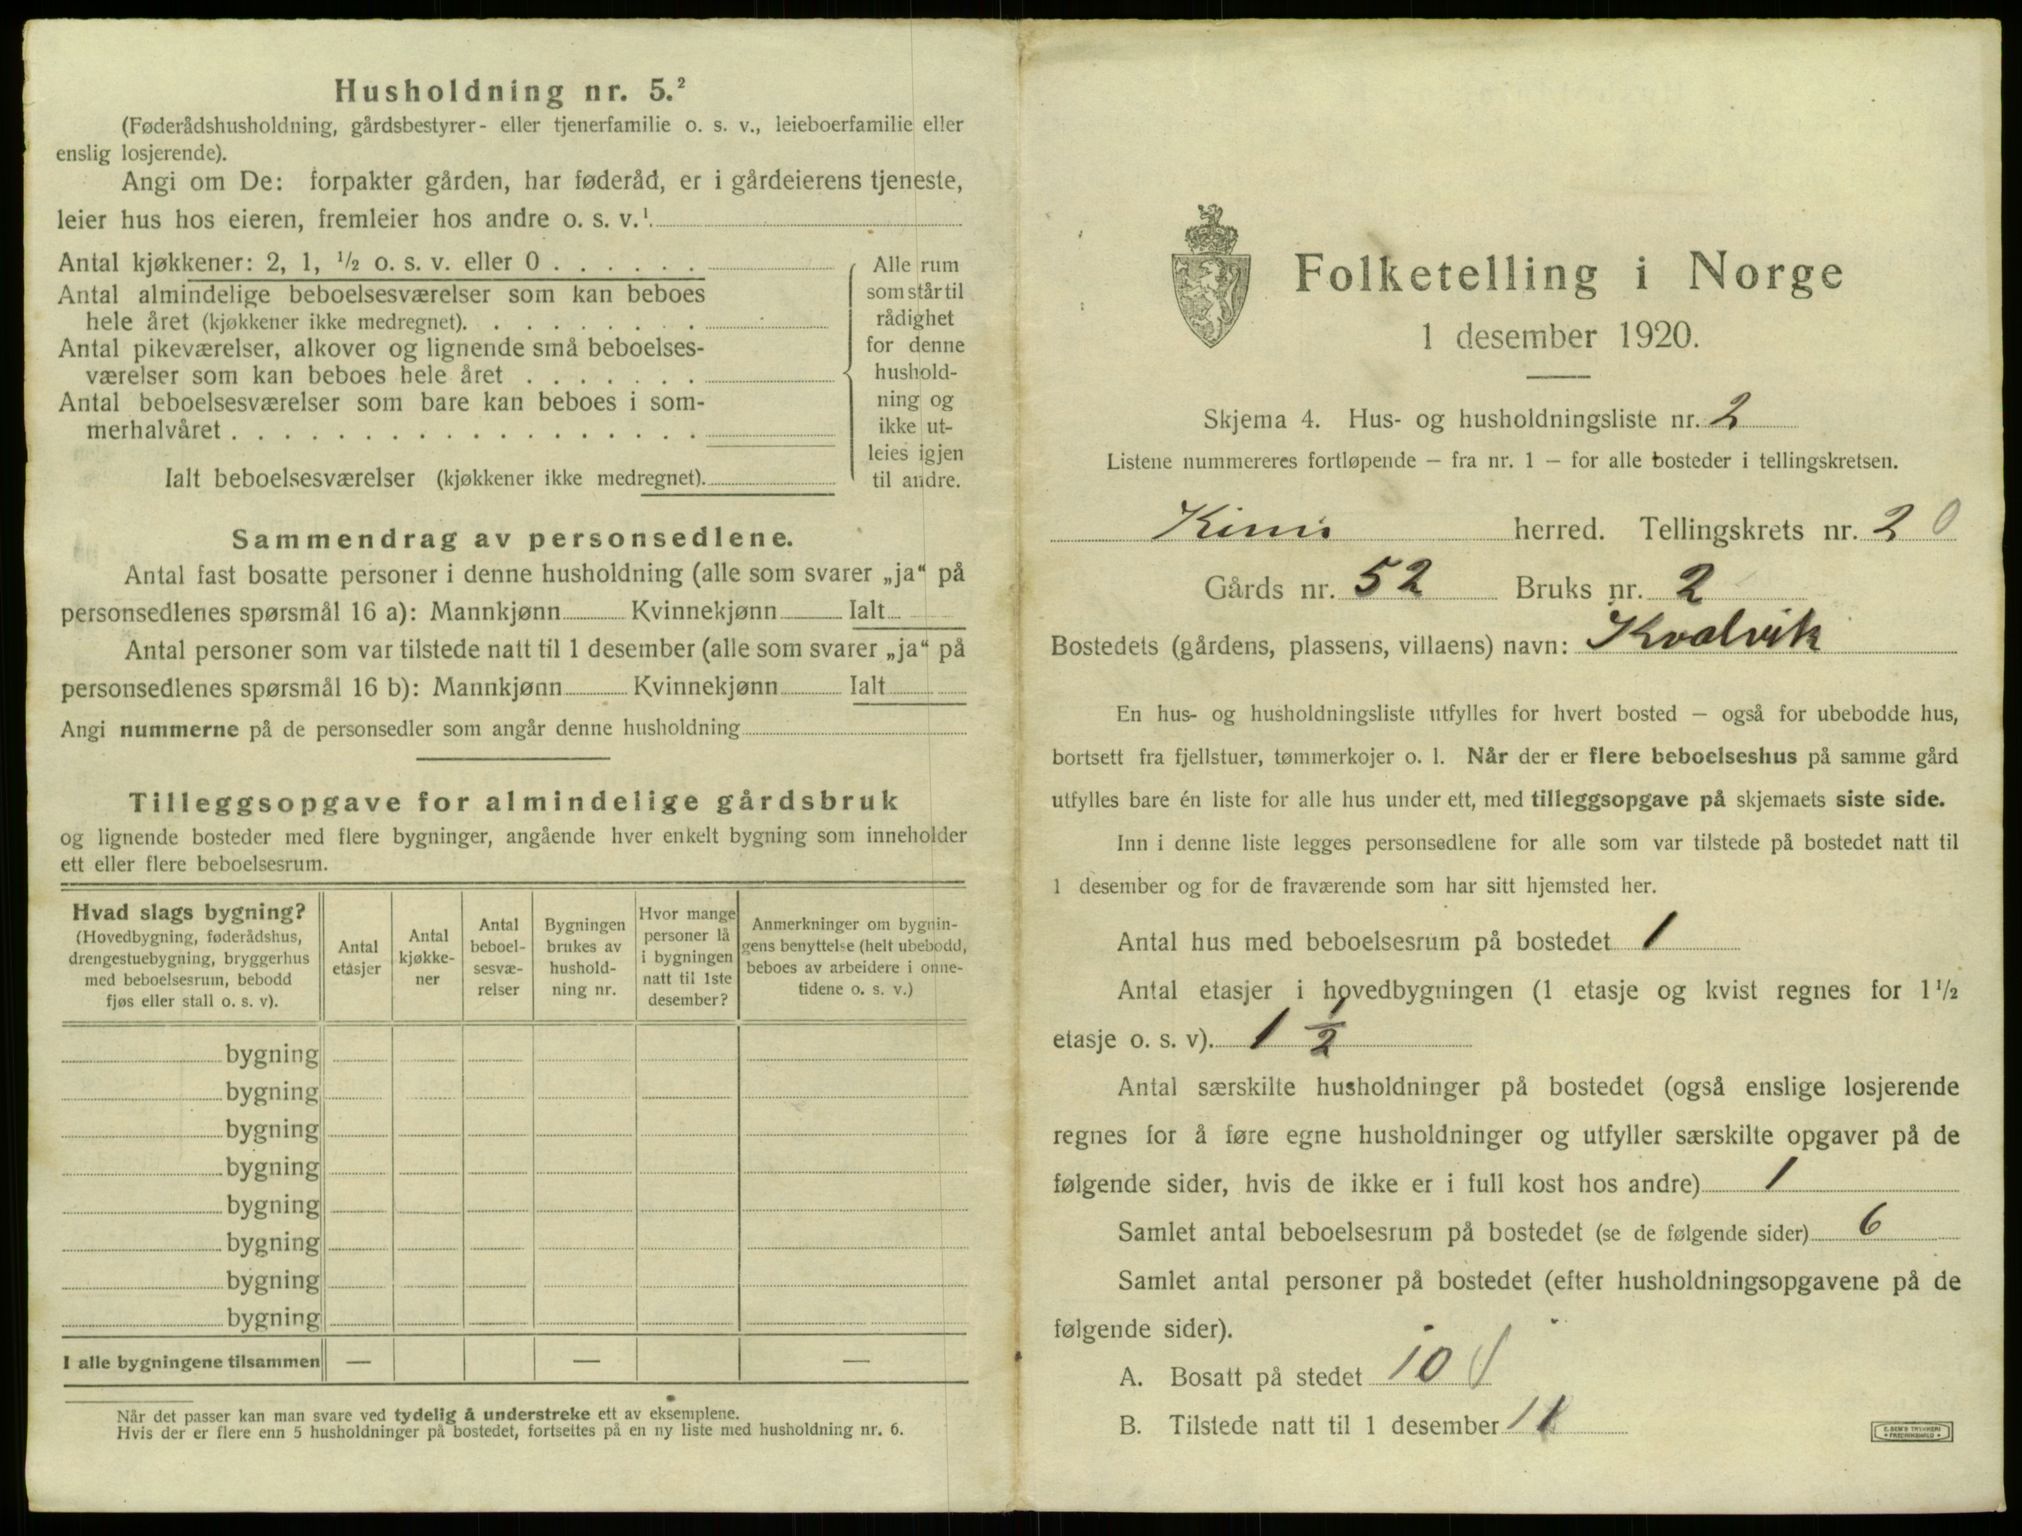 Husholdning nr. 5.²
(Føderådshusholdning, gårdsbestyrer- eller tjenerfamilie o. s. v., leieboerfamilie eller
enslig losjerende).
Angi om De: forpakter gården, har føderåd, er i gårdeierens tjeneste,
leier hus hos eieren, fremleier hos andre o. s. v.¹
Antal kjøkkener: 2, 1, ½ o. s. v. eller 0 . . . . . .
Antal almindelige beboelsesværelser som kan beboes
hele året (kjøkkener ikke medregnet). . . . . . . . .
Antal pikeværelser, alkover og lignende små beboelses-
værelser som kan beboes hele året . . . . . . .
Antal beboelsesværelser som bare kan beboes i som-
merhalvåret . . . . . . . . . . . . . . . . . .
Ialt beboelsesværelser (kjøkkener ikke medregnet).
Alle rum
som står til
rådighet
for denne
hushold-
ning og
ikke ut-
leies igjen
til andre.
Sammendrag av personsedlene.
Antal fast bosatte personer i denne husholdning (alle som svarer „ja“ på
personsedlenes spørsmål 16 a): Mannkjønn Kvinnekjønn Ialt
Antal personer som var tilstede natt til 1 desember (alle som svarer „ja“ på
personsedlenes spørsmål 16 b): Mannkjønn Kvinnekjønn Ialt
Angi nummerne på de personsedler som angår denne husholdning
Tilleggsopgave for almindelige gårdsbruk
og lignende bosteder med flere bygninger, angående hver enkelt bygning som inneholder
ett eller flere beboelsesrum.
Hvad slags bygning?
(Hovedbygning, føderådshus,
drengestuebygning, bryggerhus
med beboelsesrum, bebodd
fjøs eller stall o. s. v).
Antal
etasjer
Antal
kjøkke-
ner
Antal
beboel-
sesvæ-
relser
Bygningen
brukes av
hushold-
ning nr.
Hvor mange
personer lå
i bygningen
natt til 1ste
desember?
Anmerkninger om bygnin-
gens benyttelse (helt ubebodd,
beboes av arbeidere i onne-
tidene o. s. v.)
bygning
bygning
bygning
bygning
bygning
bygning
bygning
bygning
I alle bygningene tilsammen — — —
Når det passer kan man svare ved tydelig å understreke ett av eksemplene.
Hvis der er flere enn 5 husholdninger på bostedet, fortsettes på en ny liste med husholdning nr. 6.
Folketelling i Norge
1 desember 1920.
Skjema 4. Hus- og husholdningsliste nr. 2
Listene nummereres fortløpende – fra nr. 1 – for alle bosteder i tellingskretsen.
Kinn herred. Tellingskrets nr. 20
Gårds nr. 52 Bruks nr. 2
Bostedets (gårdens, plassens, villaens) navn: Kvalvik
En hus- og husholdningsliste utfylles for hvert bosted – også for ubebodde hus,
bortsett fra fjellstuer, tømmerkojer o. l. Når der er flere beboelseshus på samme gård
utfylles bare én liste for alle hus under ett, med tilleggsopgave på skjemaets siste side.
Inn i denne liste legges personsedlene for alle som var tilstede på bostedet natt til
1 desember og for de fraværende som har sitt hjemsted her.
Antal hus med beboelsesrum på bostedet 1
Antal etasjer i hovedbygningen (1 etasje og kvist regnes for 1½
etasje o. s. v). 1 ½
Antal særskilte husholdninger på bostedet (også enslige losjerende
regnes for å føre egne husholdninger og utfyller særskilte opgaver på de
følgende sider, hvis de ikke er i full kost hos andre) 1
Samlet antal beboelsesrum på bostedet (se de følgende sider) 6
Samlet antal personer på bostedet (efter husholdningsopgavene på de
følgende sider).
A. Bosatt på stedet 10
B. Tilstede natt til 1 desember 11